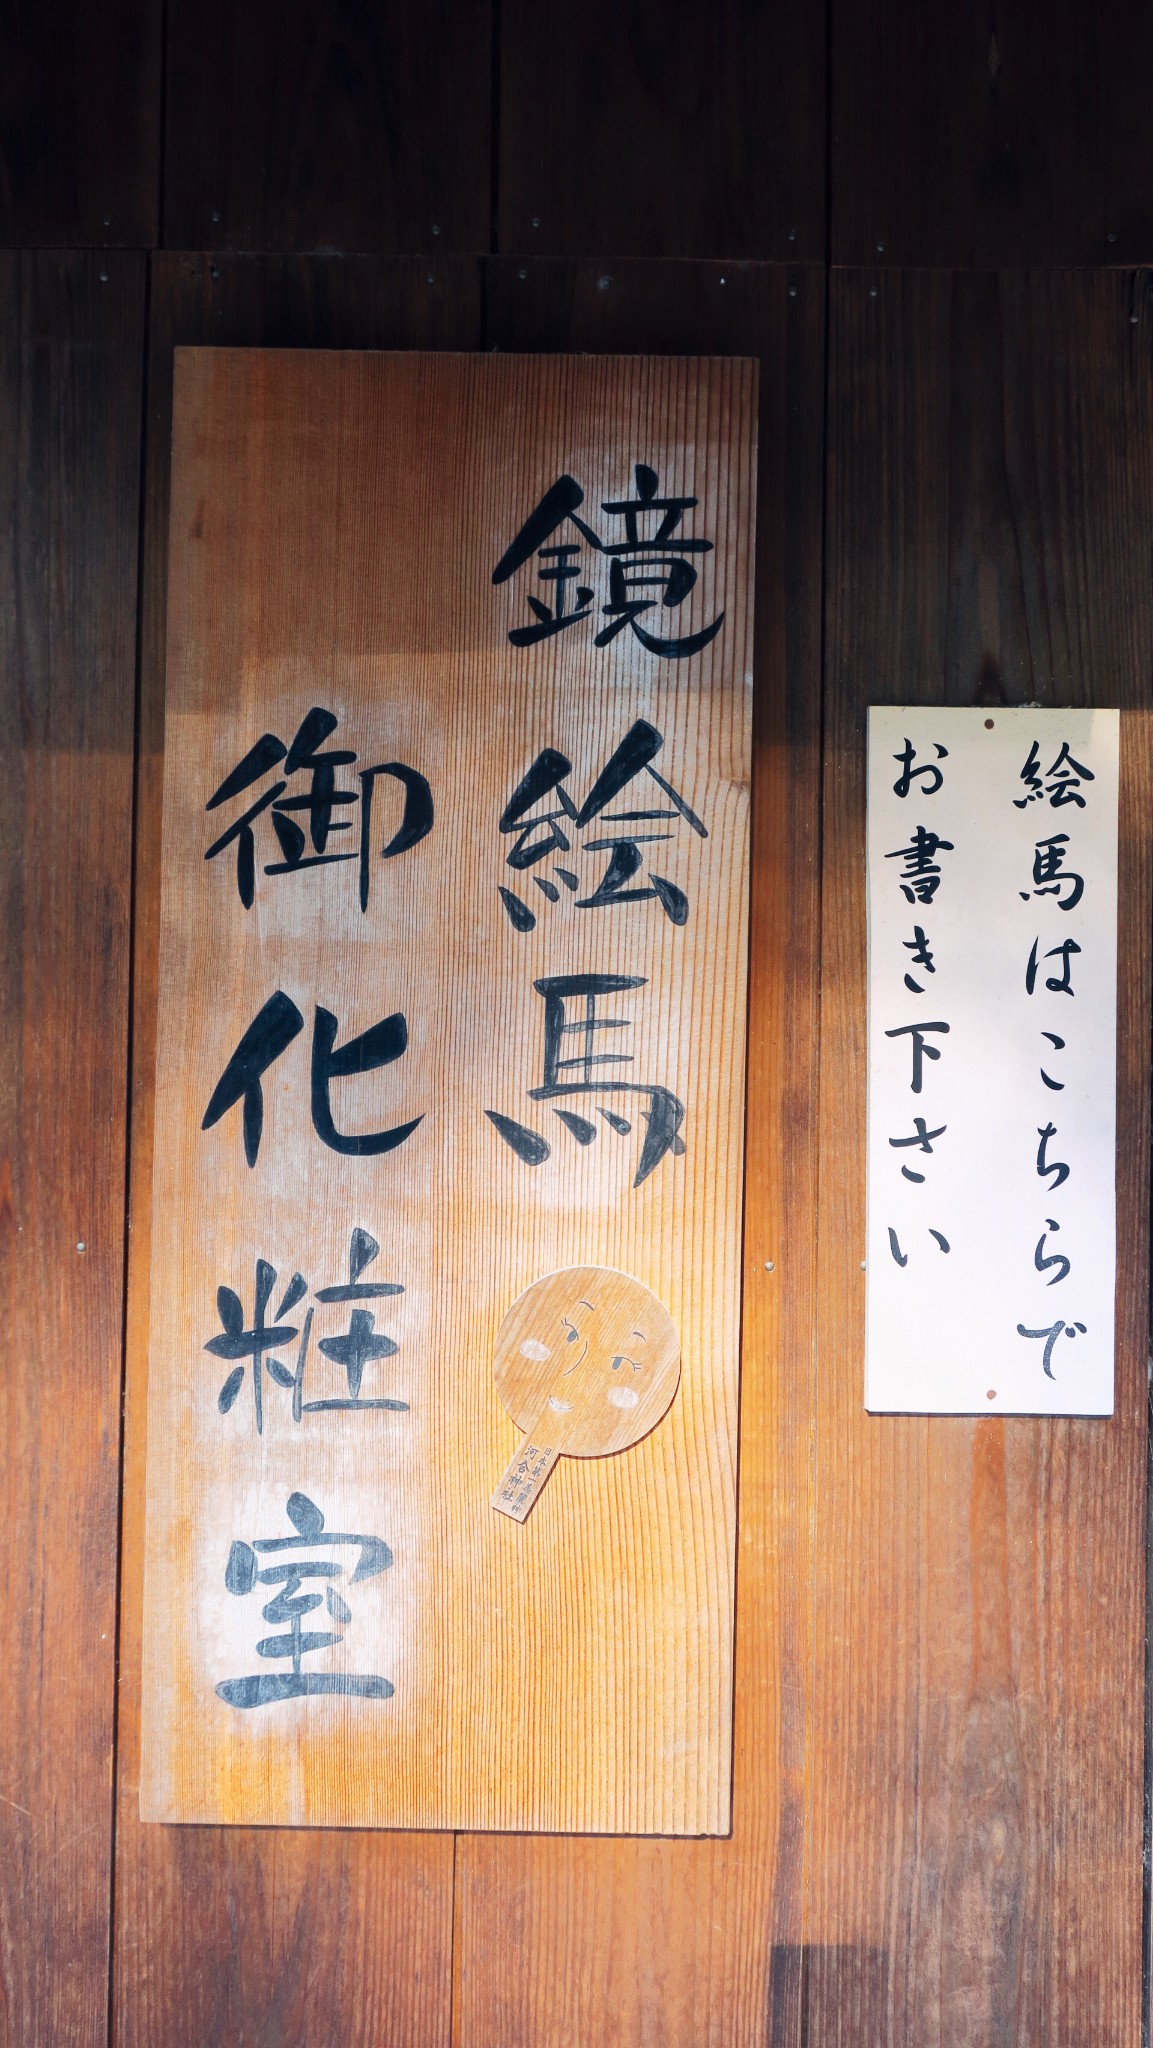 絵馬はこちらで
お書き下さい
鏡絵馬
御化粧室
日本第一美麗神
河合神社